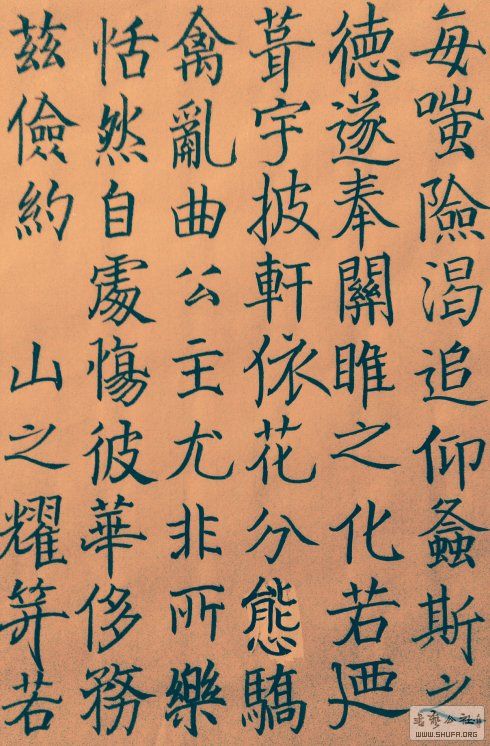 每嗤險渴追仰螽斯之
德遂奉關雎之化若廼
葺宇披軒依花分態驕
禽亂曲公主尤非所樂
恬然自處傷彼華侈務
茲儉約 山之耀笄若
書藝公社
WWW.SHUFA.ORG